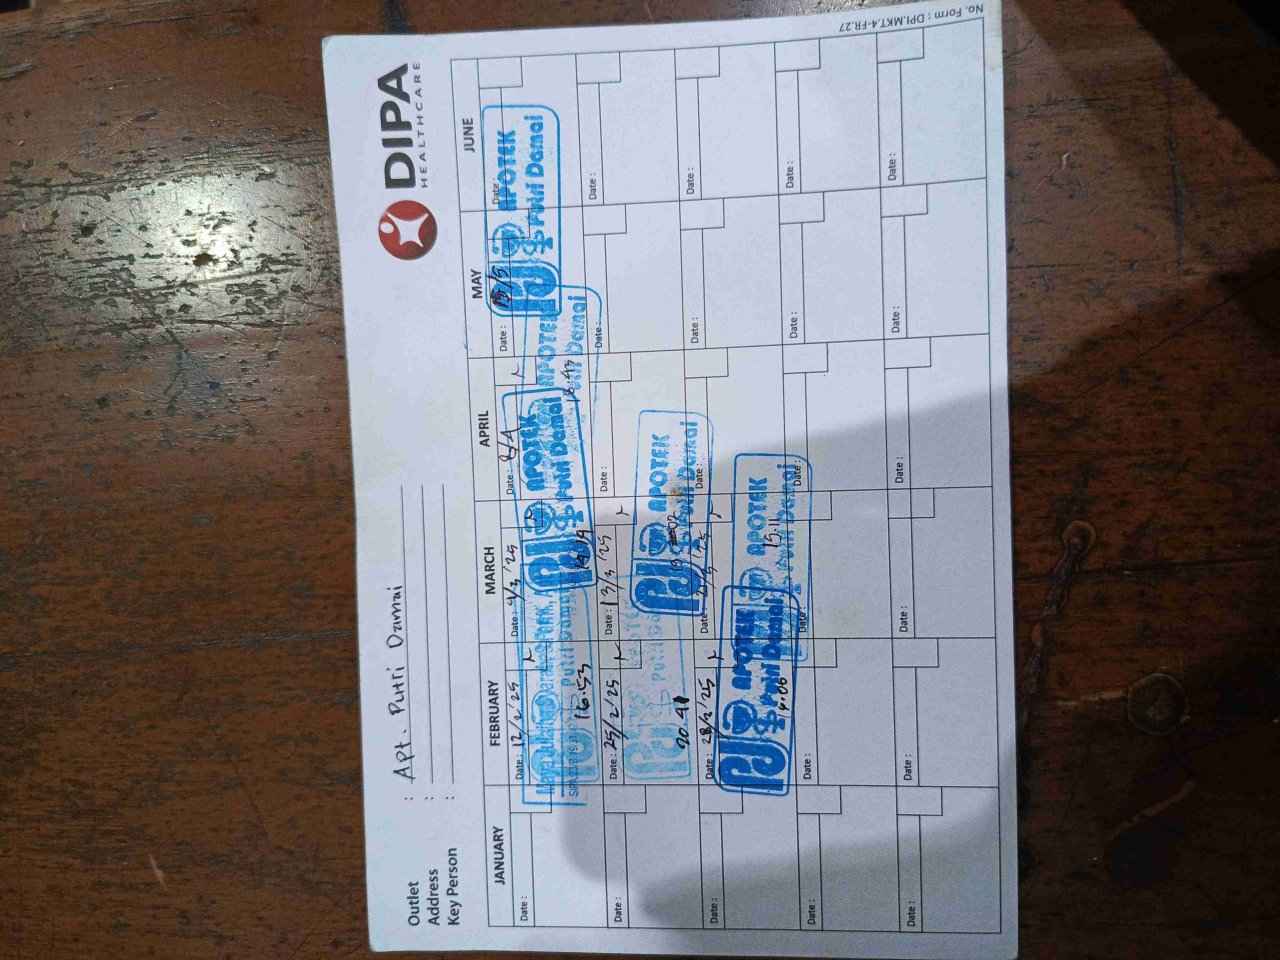 DIPA
HEALTHCARE
Outlet : Apt. Putri Damai
Address :
Key Person :
JANUARY FEBRUARY MARCH APRIL MAY JUNE
Date : Date : 12/2 '25 Date : 4/3 '25 Date : 8/4 Date : 15/5 Date :
APOTEK Putri Damai
APOTEK Putri Damai
APOTEK Putri Damai
16.53
16.43
Date : Date : 25/2 '25 Date : 13/3 '25 Date : Date : Date :
APOTEK Putri Damai
20.41
Date : Date : 28/2 '25 Date : Date : Date : Date :
APOTEK Putri Damai
APOTEK Putri Damai
15.11
Date : Date : Date : Date : Date : Date :
Date : Date : Date : Date : Date : Date :
No. Form : DPI.MKT.4-FR.27